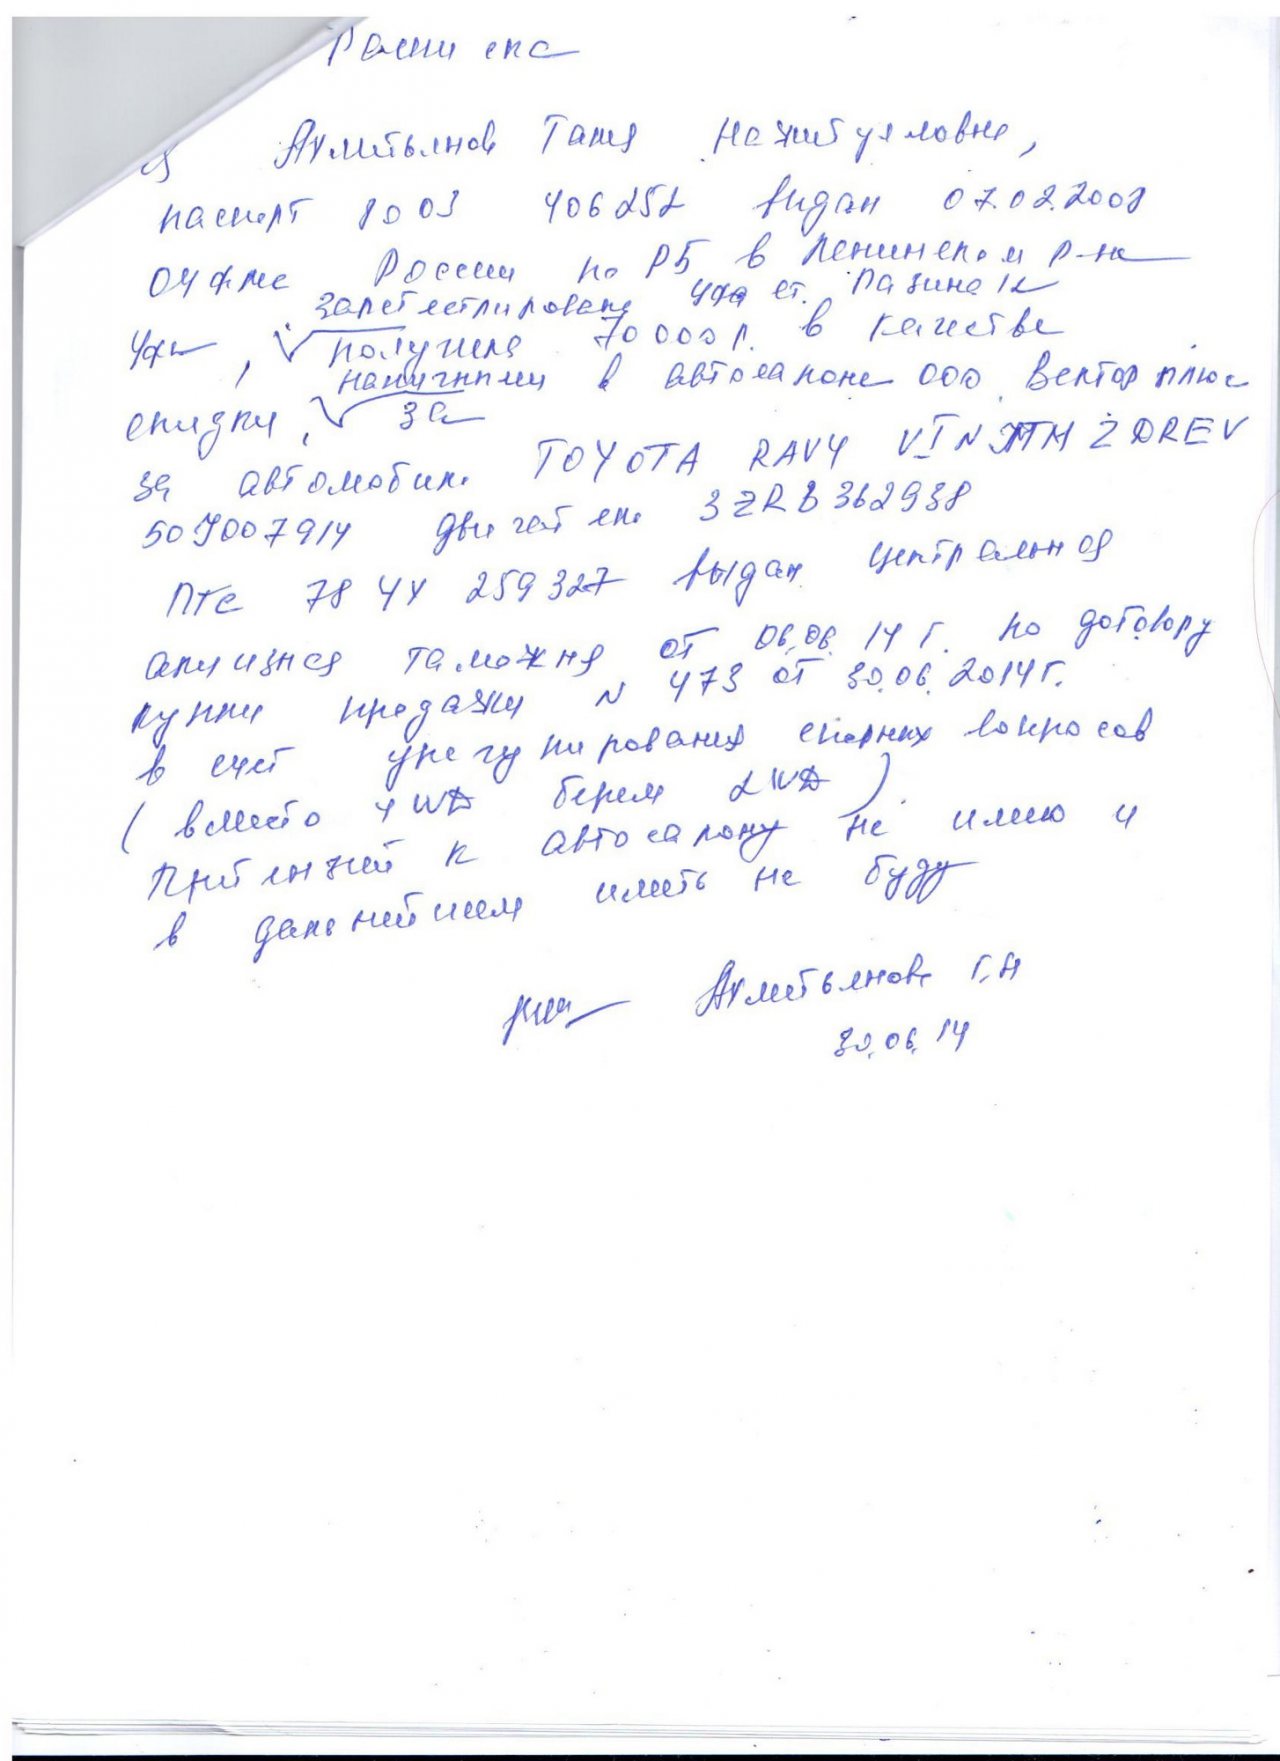 Расписка
Я Ахметьянова Гания Нажитулловна,
паспорт 8003 406252 выдан 07.02.2003
ОУФМС России по РБ в Ленинском р-не
зарегестрирована Уфа ст. 
Уфы, получила 70 000 р. в качестве
наличными в автосалоне ООО Вектор плюс
скидки, за
за автомобиль TOYOTA RAV4 VIN ZDREV
50J007914 двигатель 3ZRB362938
ПТС 78 УХ 259327 выдан Центральная
акцизная таможня от 06.06.14 г. по договору
купли продажи N 473 от 30.06.2014 г.
в счет урегулирования спорных вопросов
(вместо 4WD берем 2WD)
Притензий к автосалону не имею и
в дальнейшем иметь не буду
Ахметьянова Г.Н
30.06.14